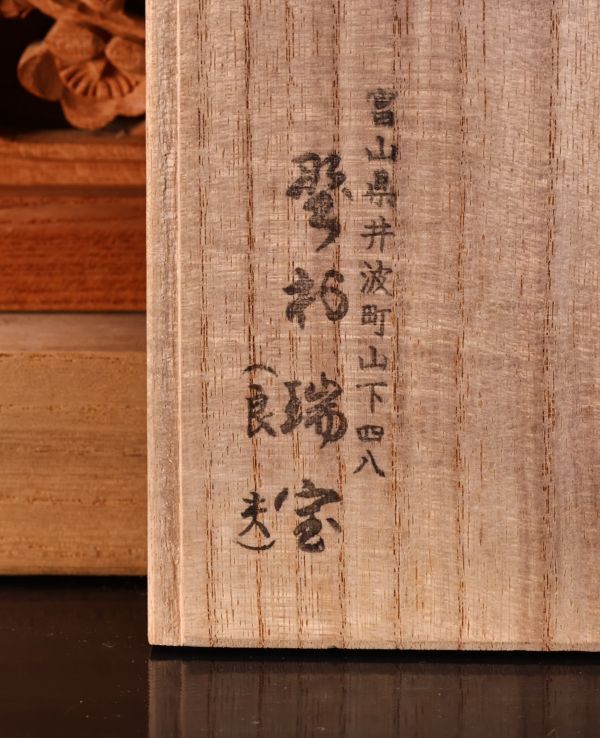 富山県井波町山下四八
野村瑞宝
(良夫)